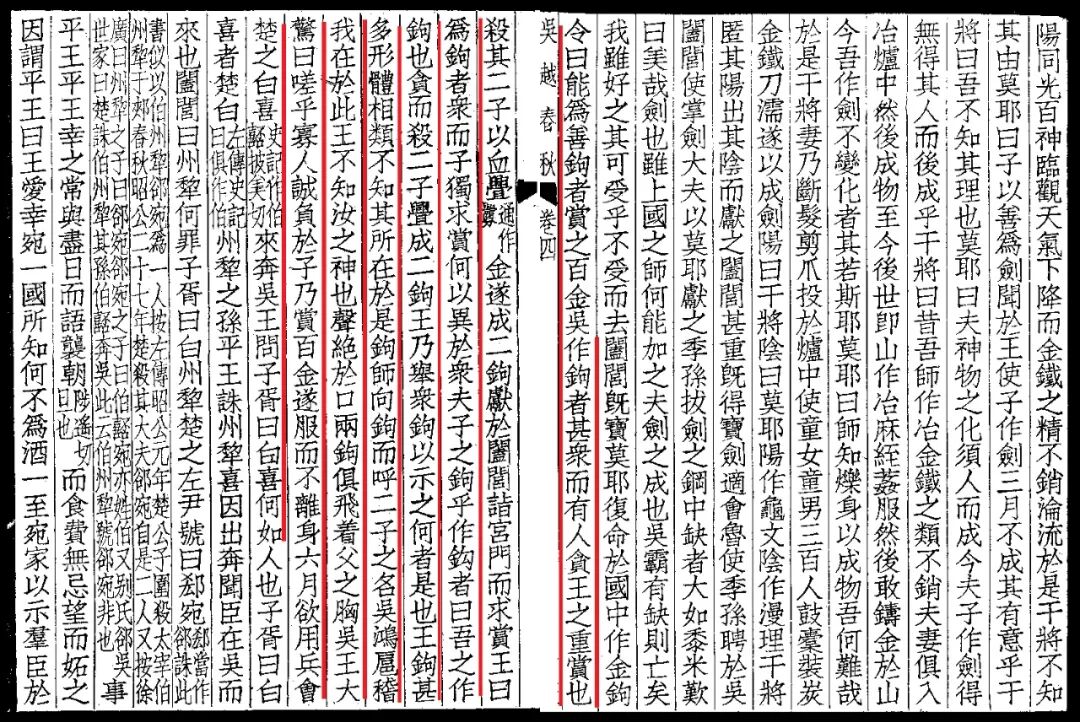 陽同光百神臨觀天氣下降而金鐵之精不銷淪流於是干將不知
其由莫耶曰子以善爲劍聞於王使子作劍三月不成其有意乎干
將曰吾不知其理也莫耶曰夫神物之化須人而成今夫子作劍得
無得其人而後成乎干將曰昔吾師作冶金鐵之類不銷夫妻俱入
冶爐中然後成物至今後世卽山作冶麻絰葌服然後敢鑄金於山
今吾作劍不變化者其若斯耶莫耶曰師知爍身以成物吾何難哉
於是干將妻乃斷髮剪爪投於爐中使童女童男三百人鼓橐裝炭
金鐵刀濡遂以成劍陽曰干將陰曰莫耶陽作龜文陰作漫理干將
匿其陽出其陰而獻之闔閭甚重旣得寶劍適會魯使季孫聘於吳
闔閭使掌劍大夫以莫耶獻之季孫拔劍之鋼中缺者大如黍米歎
曰美哉劍也雖上國之師何能加之夫劍之成也吳霸有缺則亡矣
我雖好之其可受乎不受而去闔閭旣寶莫耶復命於國中作金鉤
令曰能爲善鉤者賞之百金吳作鉤者甚衆而有人貪王之重賞也
吳越春秋 卷四
殺其二子以血舋通作釁金遂成二鉤獻於闔閭詣宮門而求賞王曰
爲鉤者衆而子獨求賞何以異於衆夫子之鉤乎作鉤者曰吾之作
鉤也貪而殺二子舋成二鉤王乃舉衆鉤以示之何者是也王鉤甚
多形體相類不知其所在於是鉤師向鉤而呼二子之名吳鴻扈稽
我在於此王不知汝之神也聲絕於口兩鉤俱飛着父之胸吳王大
驚曰嗟乎寡人誠負於子乃賞百金遂服而不離身六月欲用兵會
楚之白喜史記作伯嚭披美切來奔吳王問子胥曰白喜何如人也子胥曰白
喜者楚白左傳史記曰俱作伯州犂之孫平王誅州犂喜因出奔聞臣在吳而
來也闔閭曰州犂何罪子胥曰白州犂楚之左尹號曰郄宛郄當作郤誅此
書似以伯州犂郤宛爲一人按左傳昭公元年楚公子圍殺太宰伯
州犂于郟春秋昭公二十七年楚殺其大夫郤宛自是二人又按徐
廣曰州犂之子曰郤宛郤宛之子曰伯嚭宛亦姓伯又別氏郤吳
世家曰楚誅伯州犂其孫伯嚭奔吳此云伯州犂號郤宛非也事
平王平王幸之常與盡日而語襲朝陟遙切日也而食費無忌望而妬之
因謂平王曰王愛幸宛一國所知何不爲酒一至宛家以示羣臣於